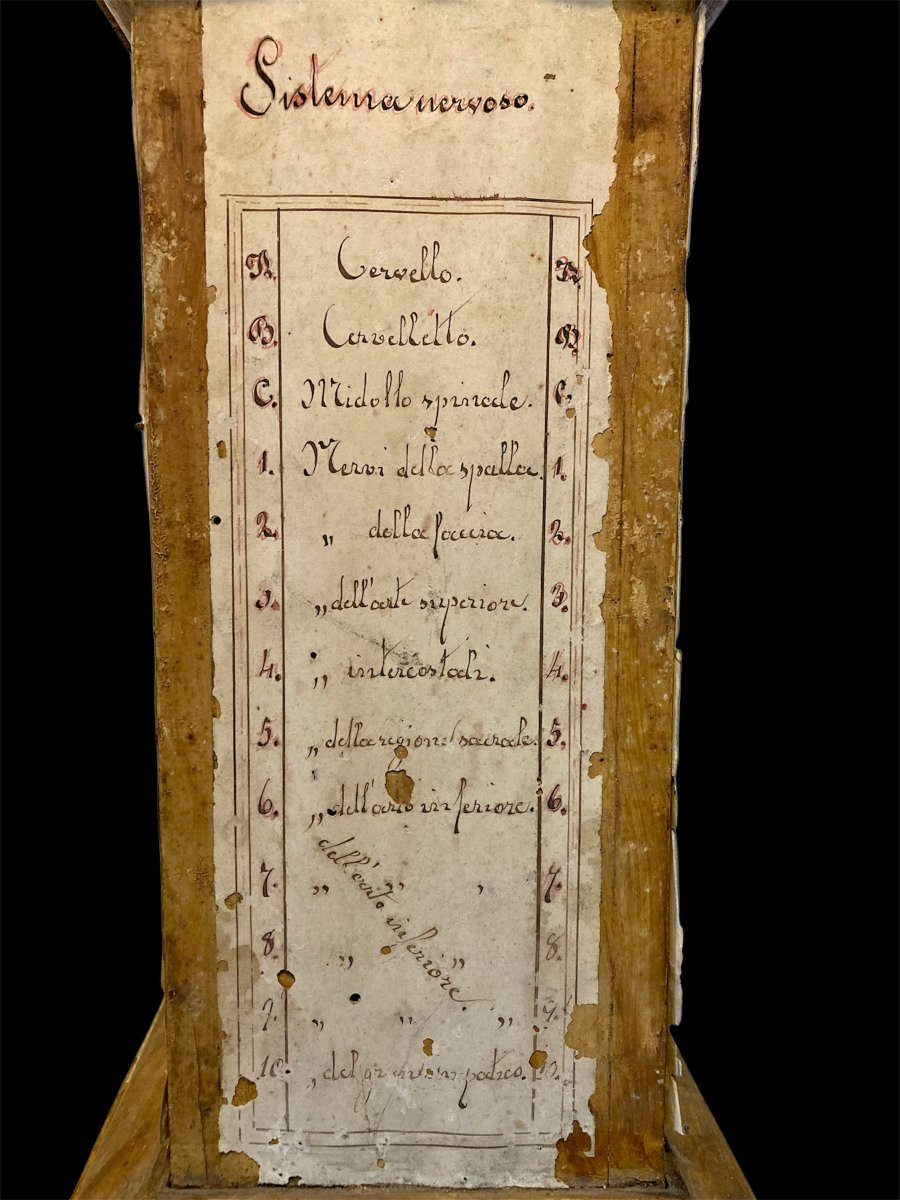 Sistema nervoso.
A. Cervello. A.
B. Cervelletto. B.
C. Midollo spinale. C.
1. Nervi della spalla. 1.
2. „ della faccia. 2.
3. „ dell'arto superiore. 3.
4. „ intercostali. 4.
5. „ della regione sacrale. 5.
6. „ dell'arto inferiore. 6.
7. „ „ „ 7.
dell'arto inferiore.
8. „ „ 8.
9. „ „ „ 9.
10. „ del gran simpatico. 10.